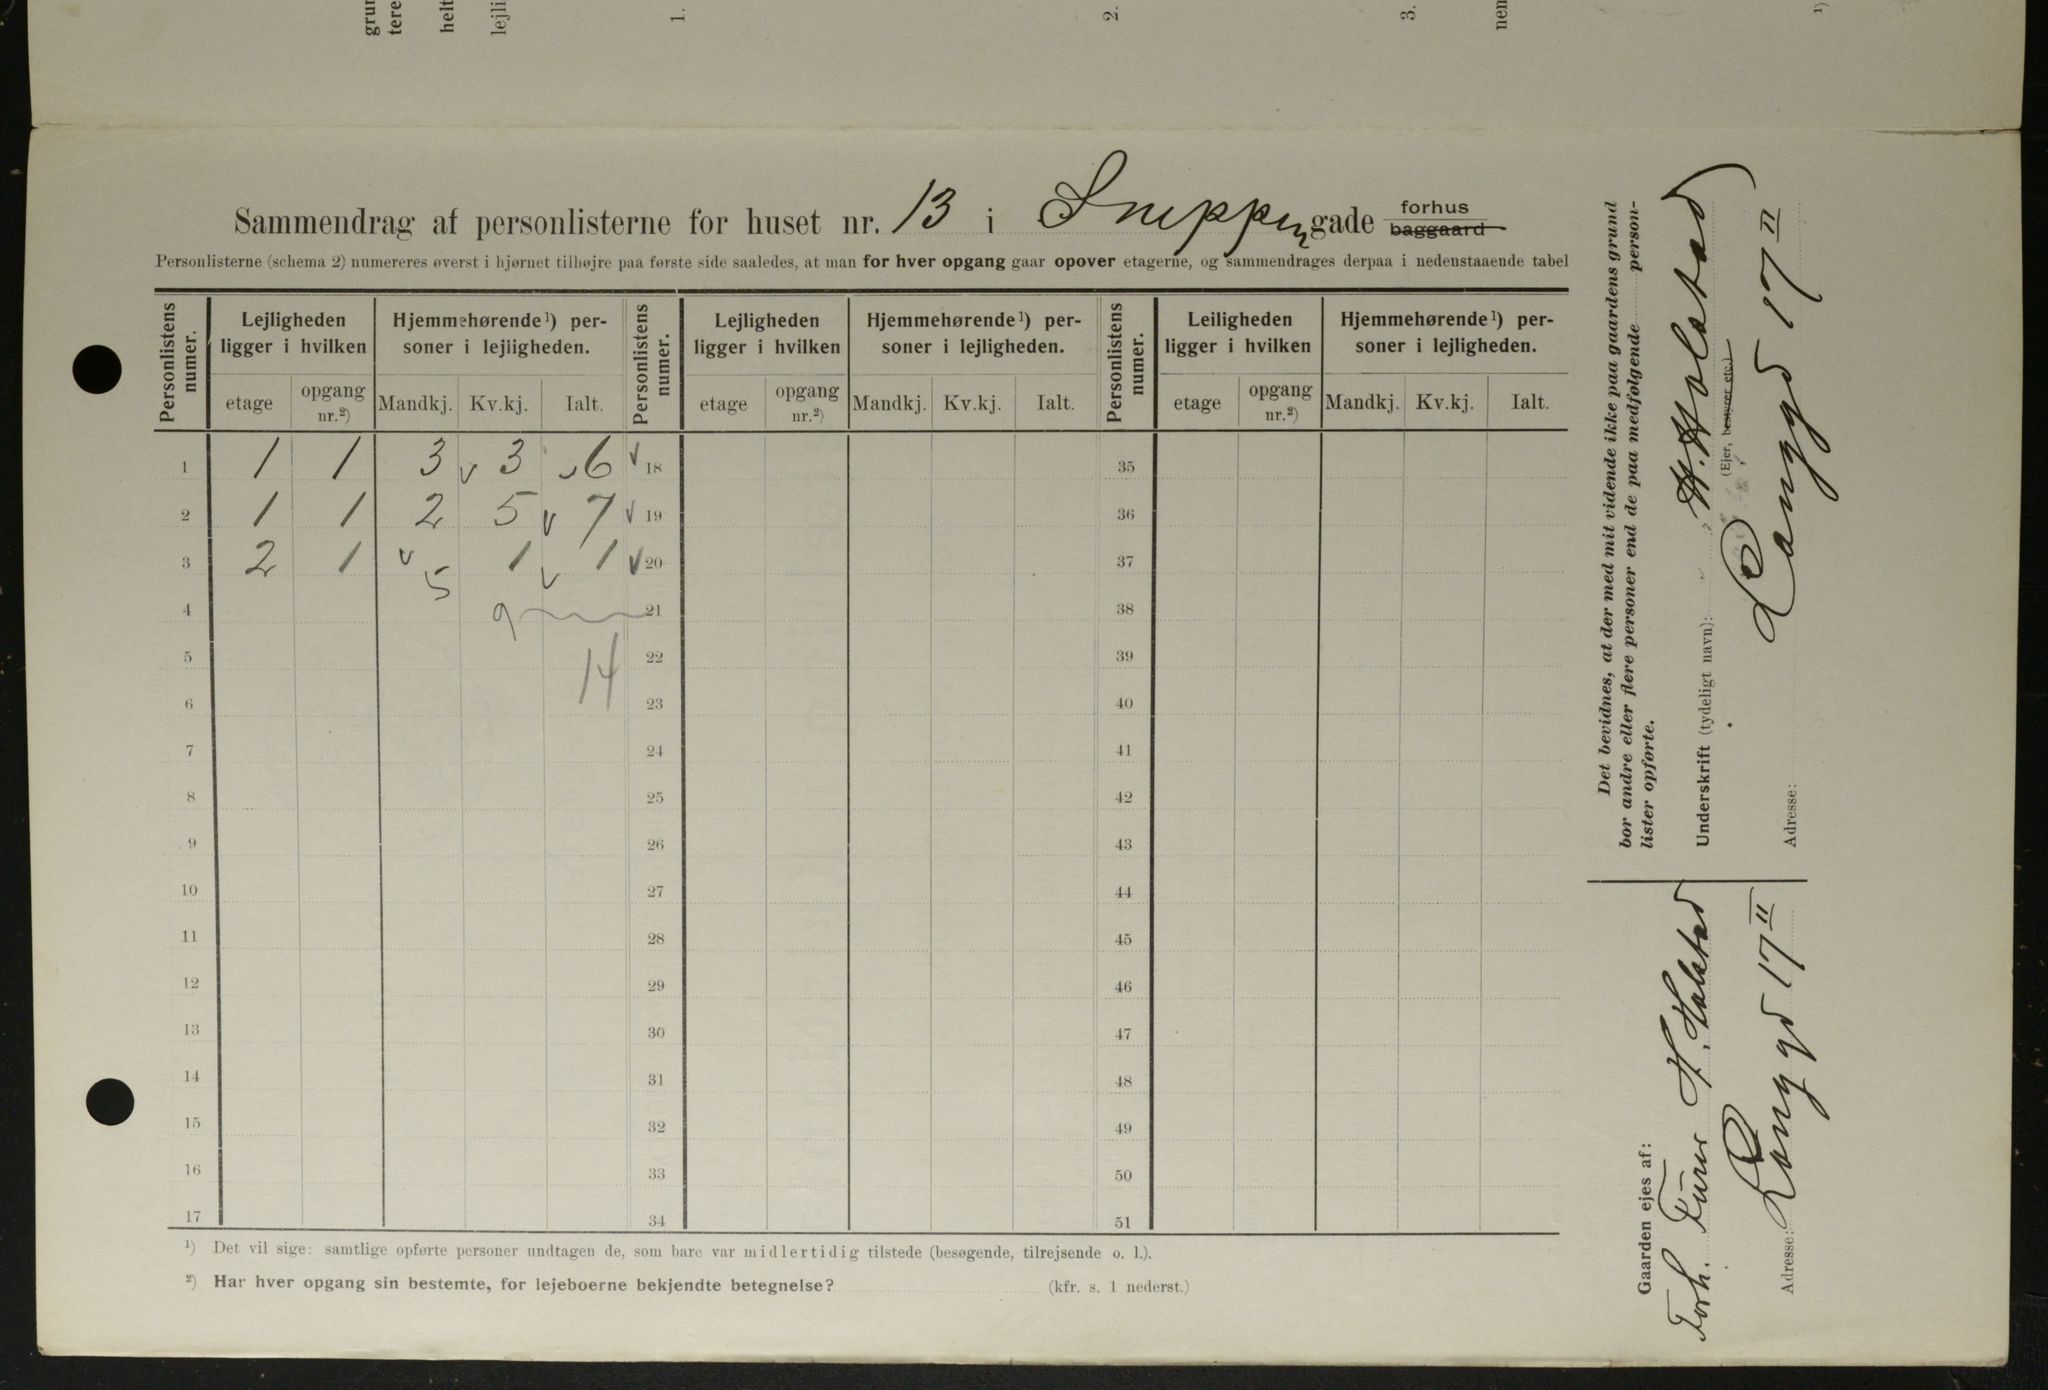 grun
tere
helt
lejli
1.
2.
3.
nen
1)
Sammendrag af personlisterne for huset nr. 13 i Snippengade forhus baggaard
Personlisterne (schema 2) numereres øverst i hjørnet tilhøjre paa første side saaledes, at man for hver opgang gaar opover etagerne, og sammendrages derpaa i nedenstaaende tabel
Personlistens numer. Lejligheden ligger i hvilken Hjemmehørende¹) personer i lejligheden. Personlistens numer. Lejligheden ligger i hvilken Hjemmehørende¹) personer i lejligheden. Personlistens numer. Leiligheden ligger i hvilken Hjemmehørende¹) personer i lejligheden.
etage opgang nr.²) Mandkj. Kv.kj. Ialt. etage opgang nr.²) Mandkj. Kv.kj. Ialt. etage opgang nr.²) Mandkj. Kv.kj. Ialt.
1 1 1 3 v 3 v 6 v 18 35
2 1 1 2 5 v 7 v 19 36
3 2 1 v 1 v 1 v 20 37
5
4 9 21 38
5 14 22 39
6 23 40
7 24 41
8 25 42
9 26 43
10 27 44
11 28 45
12 29 46
13 30 47
14 31 48
15 32 49
16 33 50
17 34 51
¹) Det vil sige: samtlige opførte personer undtagen de, som bare var midlertidig tilstede (besøgende, tilrejsende o. l.).
²) Har hver opgang sin bestemte, for lejeboerne bekjendte betegnelse? (kfr. s. 1 nederst.)
Det bevidnes, at der med mit vidende ikke paa gaardens grund
bor andre eller flere personer end de paa medfølgende person-
lister opførte.
Underskrift (tydeligt navn): H. Holstad
(Ejer, bestyrer etc.)
Adresse: Langgd 17 II
Gaarden ejes af:
Torh. H. Holstad
Adresse: Langgd 17 II